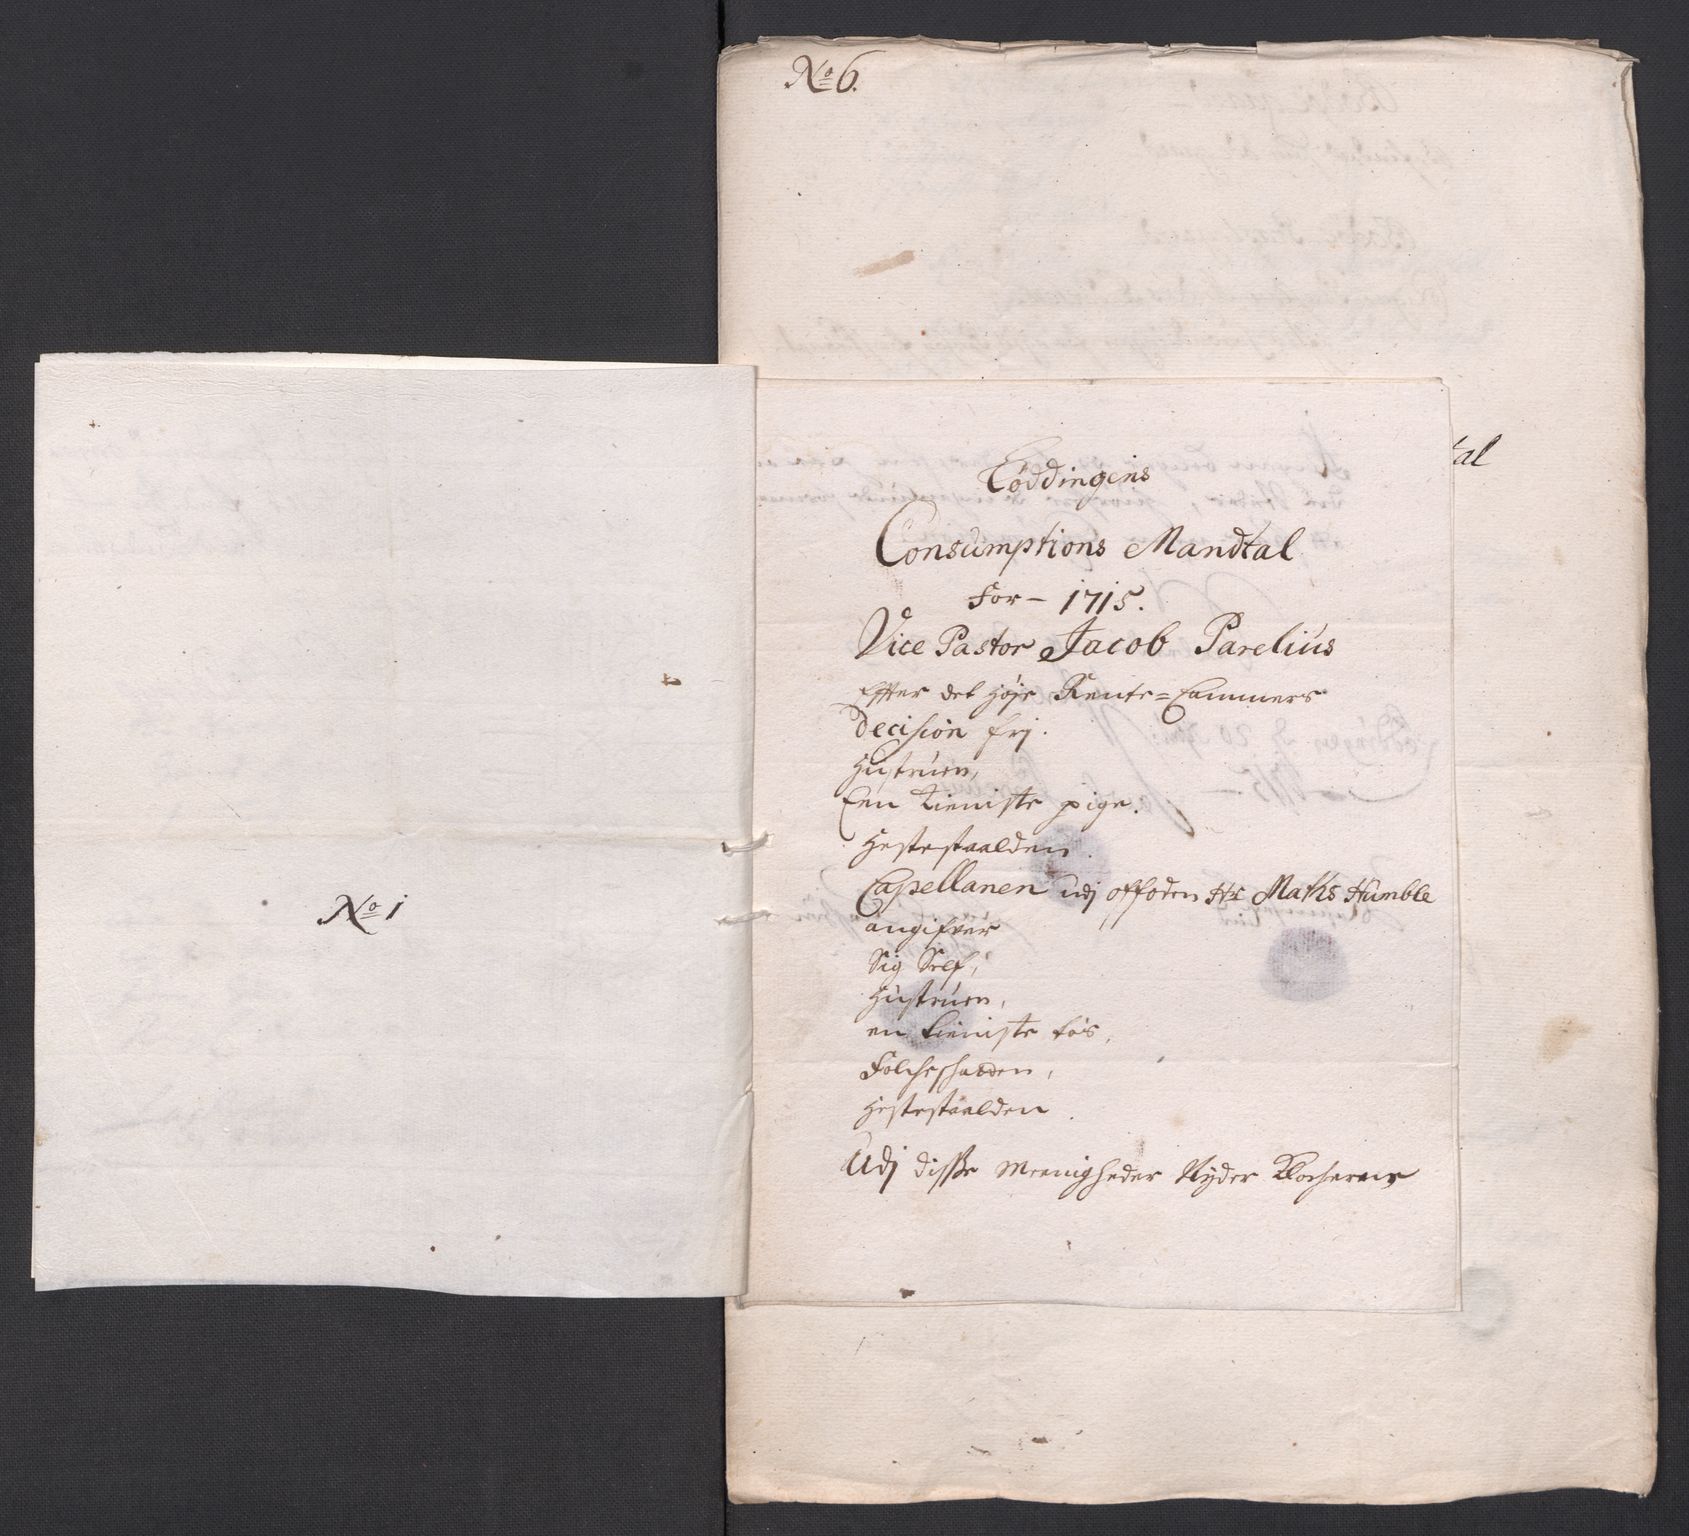 No 6.
tal
No 1
Löddingens
Consumptions Mandtal
For - 1715.
Vice Pastor Jacob Parelius
Effter det Høje Rente=Cammers
Decision frj.
Hustruen,
Een tieniste pige.
Hestestaalden.
Capellanen udj offoden Hr Mathis Humble
angifver
Sig Self,
Hustruen,
en tieniste tøs,
Folche
Hestestaalden.
Udj disße Meenigheder Nyder Klocheren